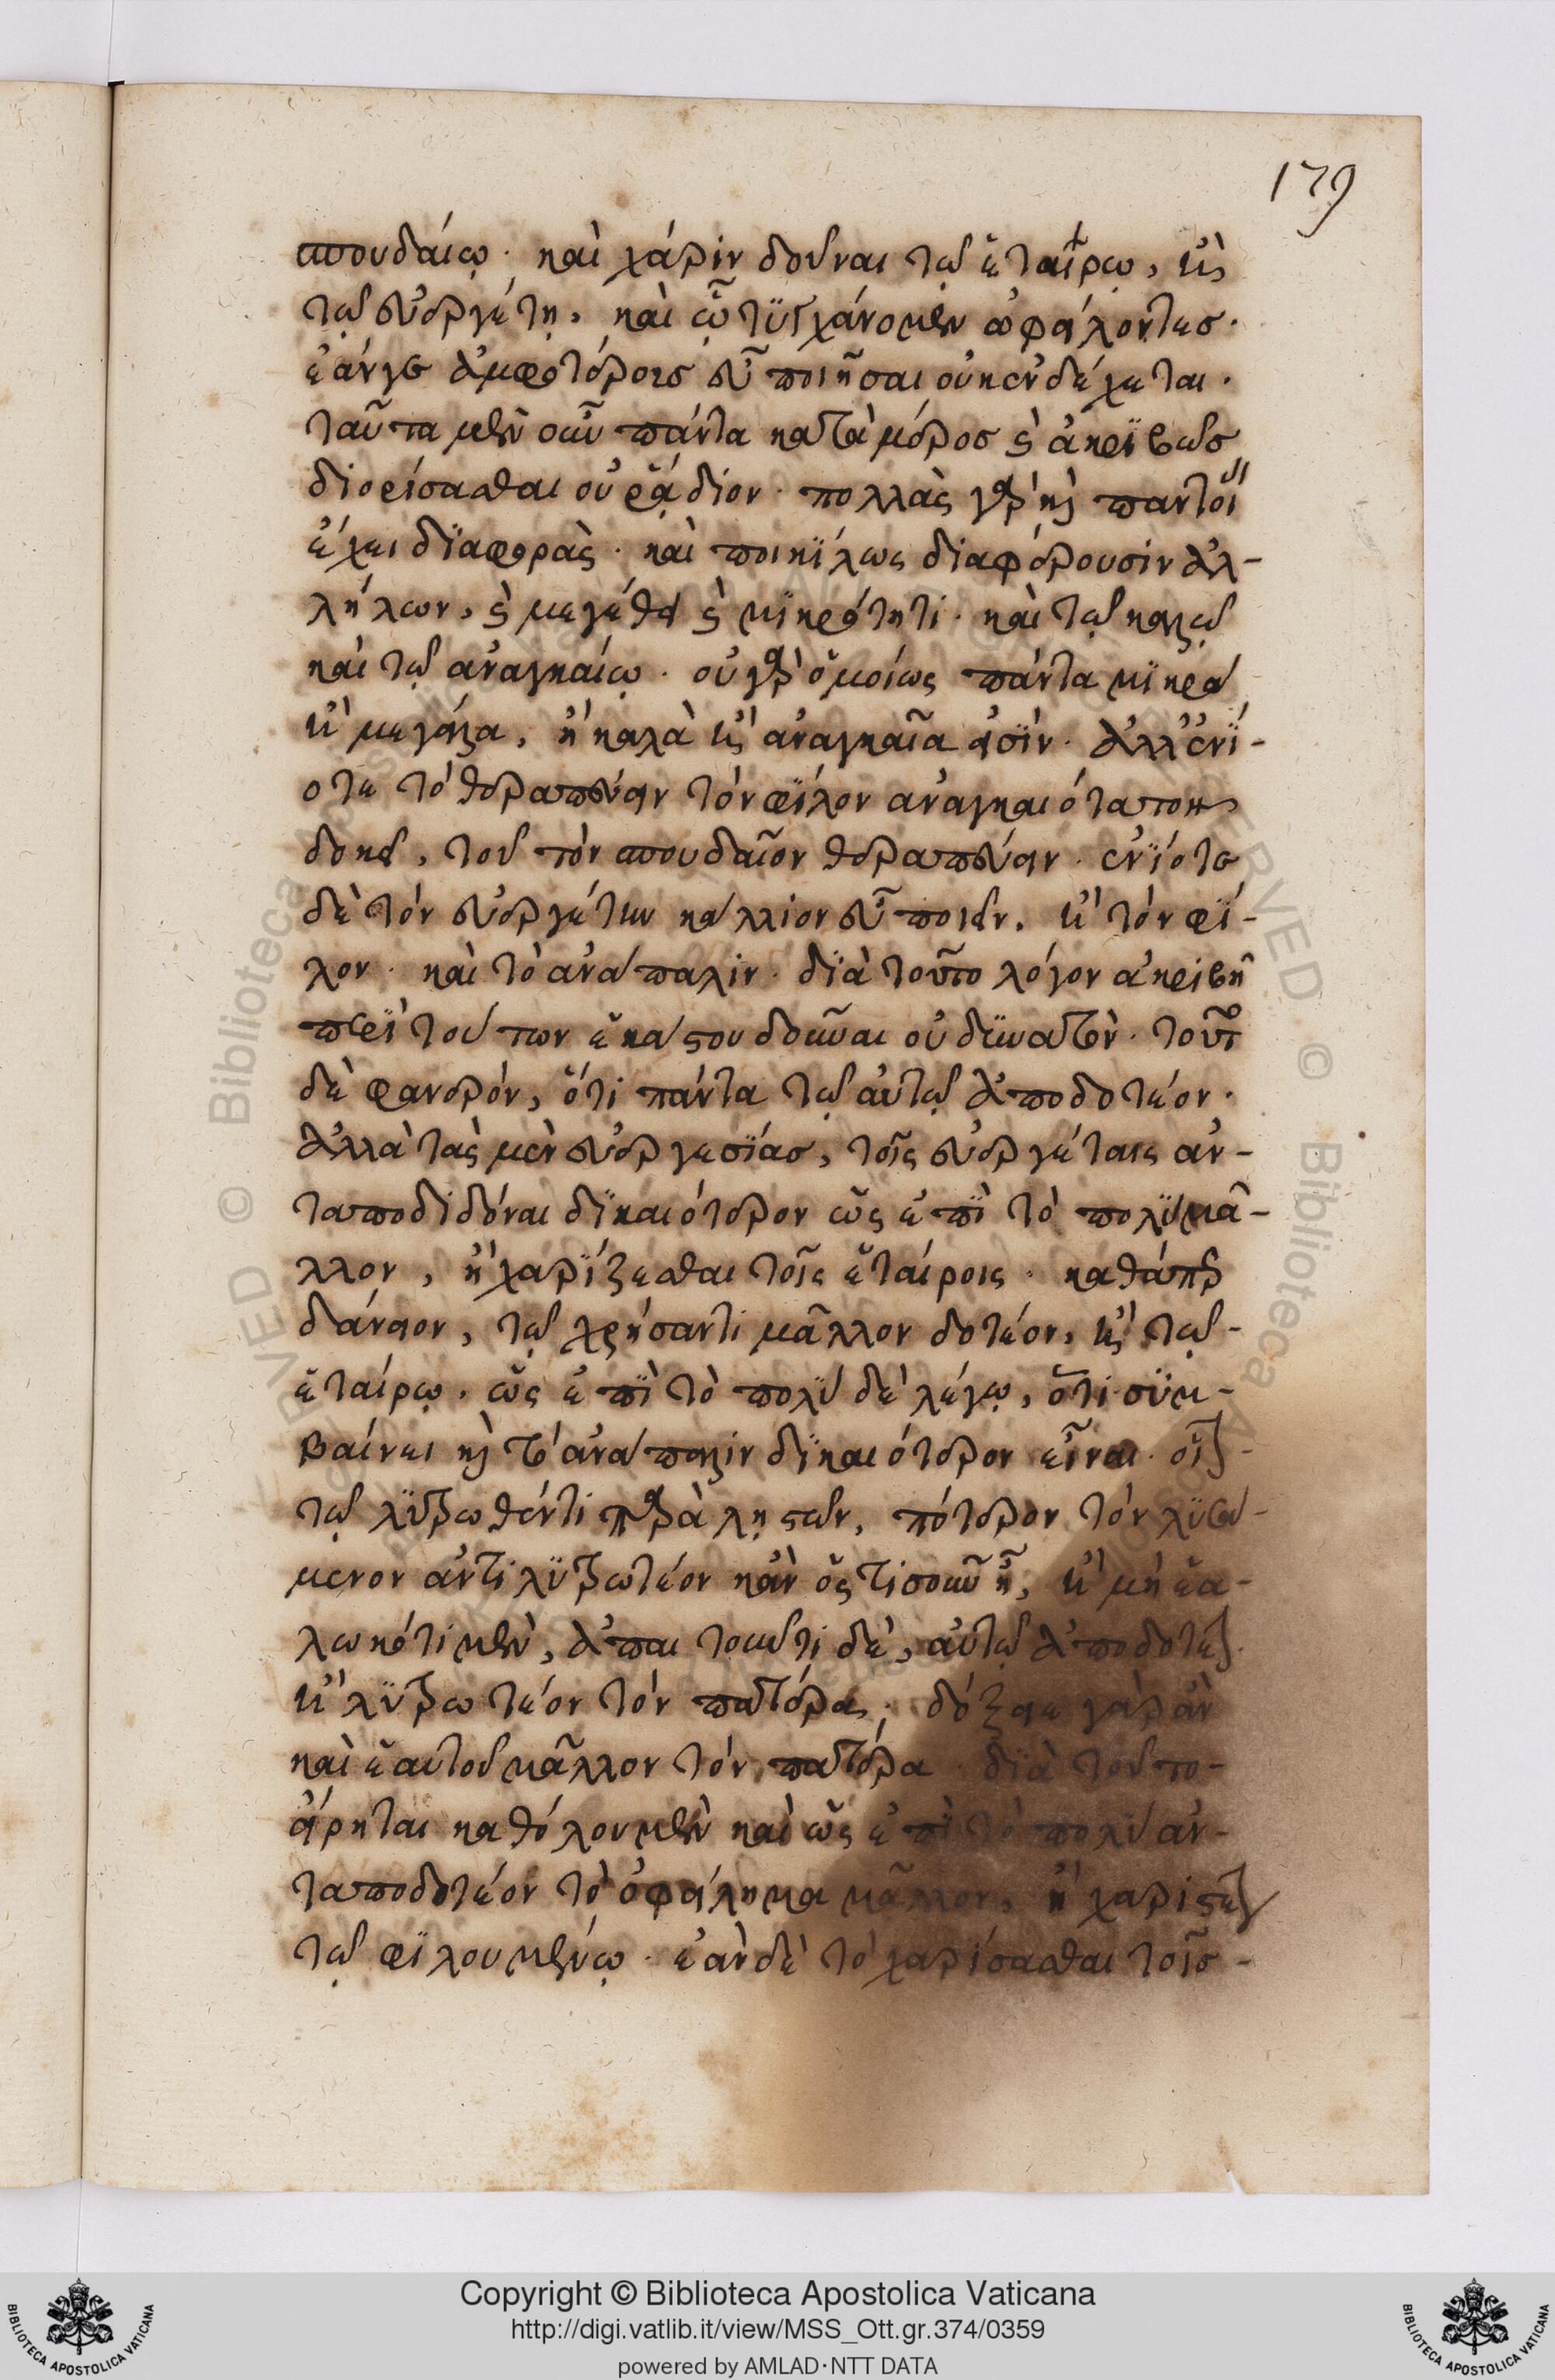 179
σπουδαίω· καὶ χάριν δοῦναι τῷ ἑταίρω, ἢ
τῷ εὐεργέτη, καὶ ᾧ τϋγχάνομεν ὠφείλοντες·
ἐάνγε ἀμφοτέροις εὖ ποιῆσαι οὐκ ἐνδέχεται·
ταῦτα μὲν οὖν πάντα κατὰ μέρος ἢ ἀκρϊβῶς
διορίσασθαι οὐ ῥάδιον· πολλὰς γὰρ κỳ παντοί
ἔχει δϊαφορὰς· καὶ ποικΐλως διαφέρουσιν ἀλ-
λήλων, ἢ μεγέθει ἢ μϊκρότητι· καὶ τῷ καλῷ
καὶ τῷ ἀναγκαίῳ· οὐ γὰρ ὁμοίως πάντα μϊκρὰ
ἢ μεγάλα, ἢ καλὰ ἢ ἀναγκαῖα εἰσΐν· ἀλλ' ἐνΐ-
οτε τὸ θεραπεύειν τὸν φΐλον ἀναγκαιότατον
δοκεῖ, τοῦ τὸν σπουδαῖον θεραπεύειν· ἐνΐοτε
δὲ τὸν εὐεργέτην κάλλιον εὖ ποιεῖν, ἢ τὸν φΐ-
λον· καὶ τὸ ἀνάπαλιν· δϊὰ τοῦτο λόγον ἀκριβῆ
περὶ τούτων ἑκάστου δοῦναι οὐ δϋνατὸν· τοῦτο
δὲ φανερόν, ὅτι πάντα τῷ αὐτῷ ἀποδοτέον·
ἀλλὰ τὰς μὲν εὐεργεσΐας, τοῖς εὐεργέταις ἀν-
ταποδιδόναι δϊκαιότερον ὡς ἐπῒ τὸ πολῢ μᾶ-
λλον, ἢ χαρΐζεσθαι τοῖς ἑταίροις· καθάπερ
δάνειον, τῷ χρήσαντι μᾶλλον δοτέον, ἢ τῷ-
ἑταίρῳ· ὡς ἐπῒ τὸ πολὺ δὲ λέγω, ὅτι σϋμ-
βαίνει κỳ τὸ ἀνάπαλιν δϊκαιότερον εἶναι· οἷον-
τῷ λϋτρωθέντι παρὰ ληστῶν, πότερον τὸν λϋσά-
μενον ἀντιλϋτρωτέον κἂν ὅςτισοῦν ᾖ, ἢ μὴ ἑα-
λωκότι μὲν, ἀπαιτοῦντι δὲ, αὐτῷ ἀποδοτέον·
ἢ λϋτρωτέον τὸν πατέρα· δόξειε γὰρ ἂν
καὶ ἑαυτοῦ μᾶλλον τὸν πατέρα· δϊὰ τοῦτο-
εἴρηται καθόλου μὲν καὶ ὡς ἐπῒ τὸ πολὺ ἀν-
ταποδοτέον τὸ ὀφείλημα μᾶλλον, ἢ χαριστέον
τῷ φϊλουμένῳ· ἐὰν δὲ τὸ χαρίσασθαι τοῖς-
Copyright © Biblioteca Apostolica Vaticana
http://digi.vatlib.it/view/MSS_Ott.gr.374/0359
powered by AMLAD·NTT DATA
BIBLIOTECA APOSTOLICA VATICANA
BIBLIOTECA APOSTOLICA VATICANA